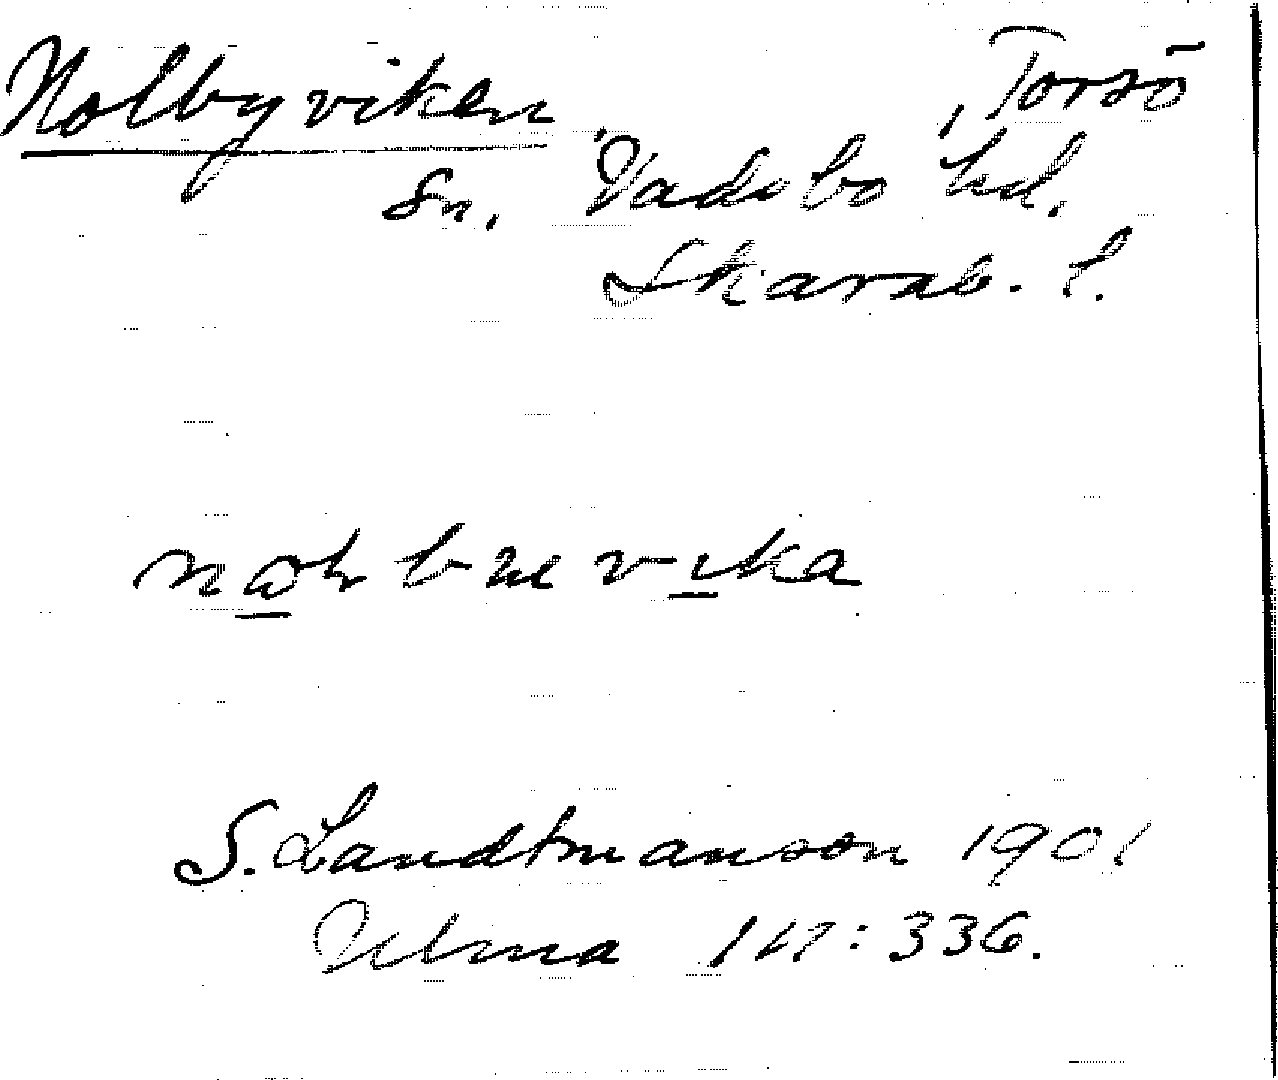 Nolbyviken, Torsö
Sn. Vadsbo hd.
Skarab. l.
vika
S. Landtmanson 1901
Ulma 147:336.